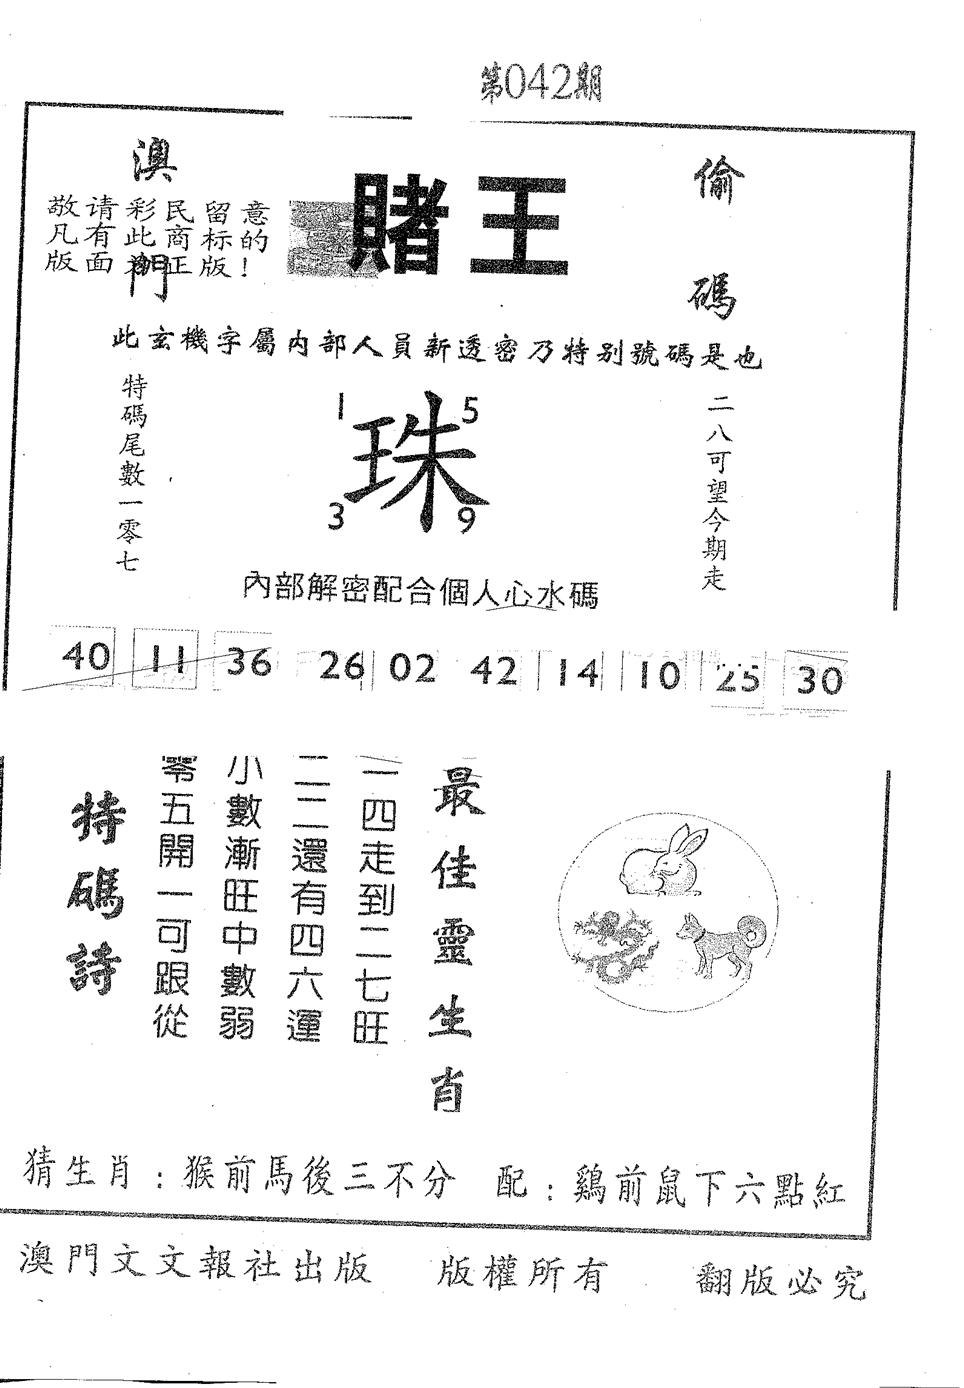 第042期
澳門
賭王
偷碼
敬请彩民留意
凡有此商标的
版面为正版!
此玄機字屬内部人員新透密乃特别號碼是也
特碼尾數一零七
1 5
珠
3 9
二八可望今期走
內部解密配合個人心水碼
40 11 36 26 02 42 14 10 25 30
最佳靈生肖
一四走到二七旺
二二還有四六運
小數漸旺中數弱
零五開一可跟從
特碼詩
猜生肖:猴前馬後三不分 配:鷄前鼠下六點紅
澳門文文報社出版 版權所有 翻版必究